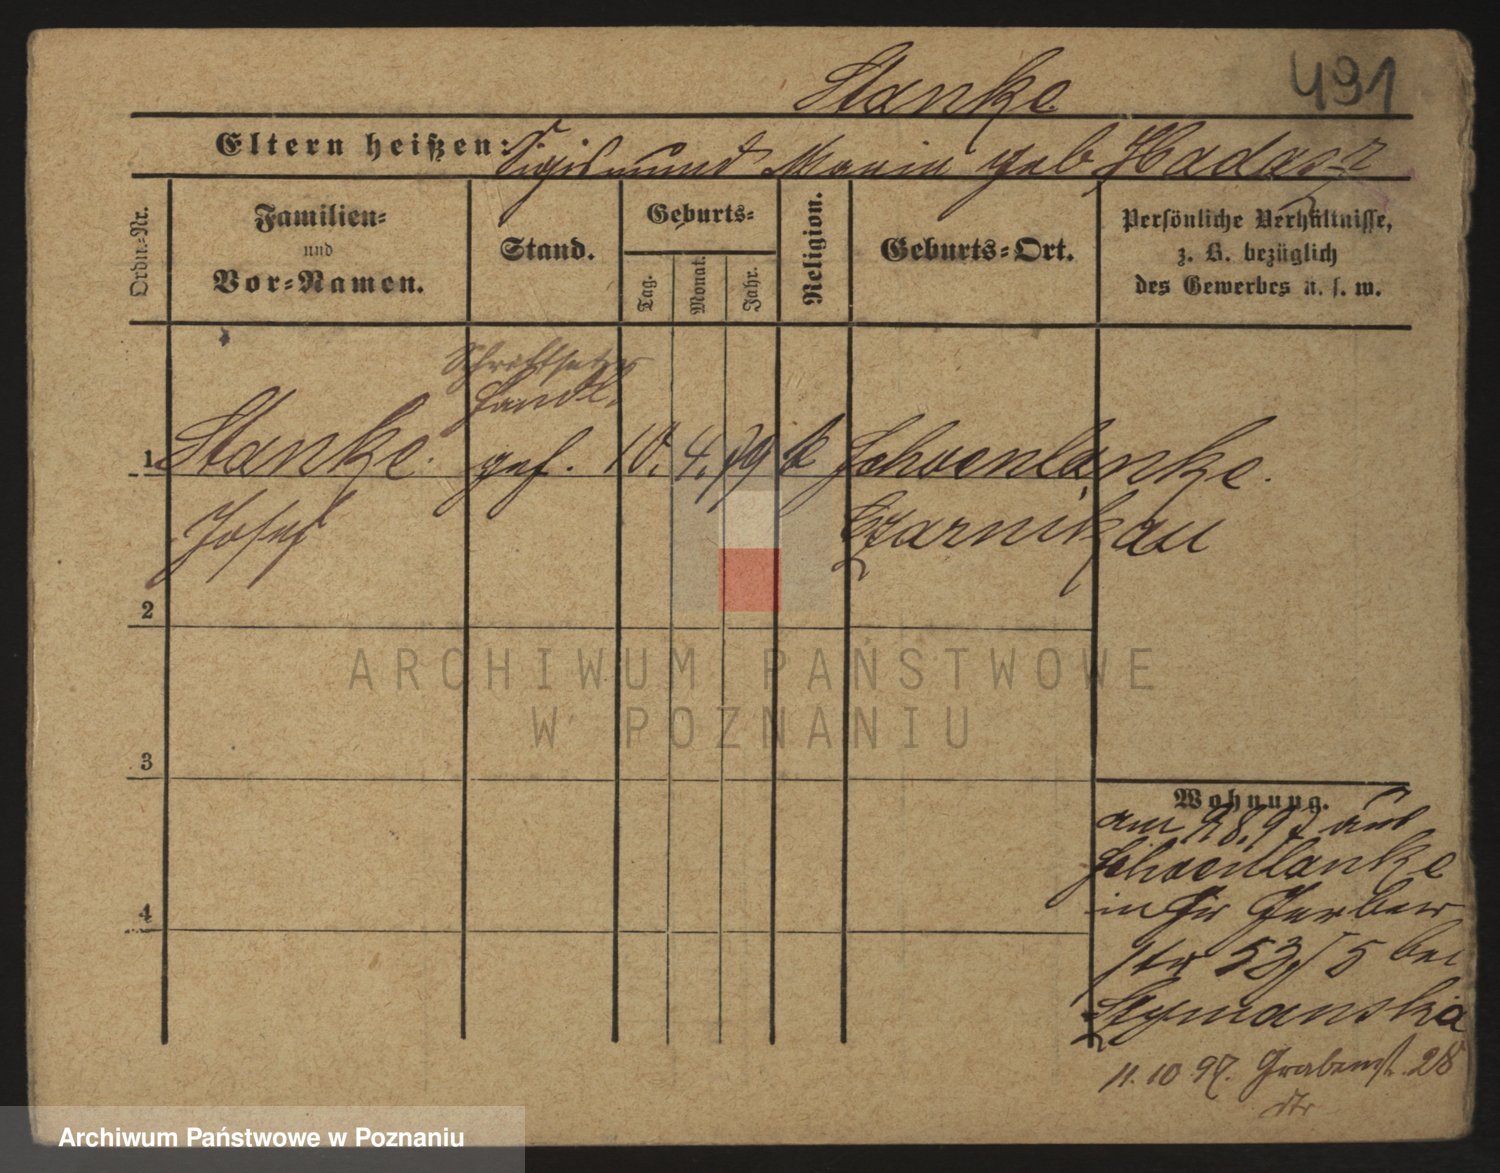 Stanke
491
Eltern heißen: Sigismund Maria geb Hadasz
Ordn.-Nr.
Familien-
und
Vor-Namen.
Stand.
Geburts-
Tag.
Monat.
Jahr.
Religion.
Geburts-Ort.
Persönliche Verhältnisse,
z. B. bezüglich
des Gewerbes u. s. w.
Schriftsetzer
Handl.
1 Stanke gef. 10. 4. 79 k Schoenlanke.
Josef Czarnikau
2
ARCHIWUM PAŃSTWOWE
W POZNANIU
3
Wohnung.
am 98.97 aus
Schoenlanke
in Gr Gerber
str 53/5 bei
Szymanska
4
11.10.97. Grabenst. 28
Archiwum Państwowe w Poznaniu